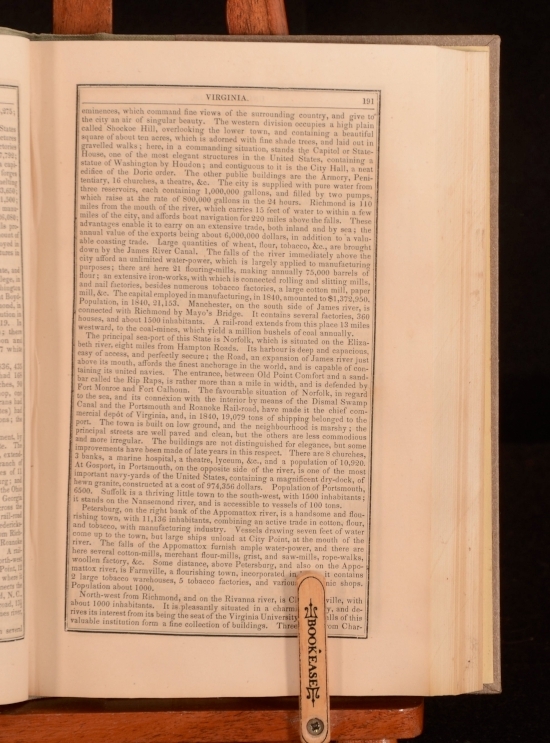 VIRGINIA. 191
eminences, which command fine views of the surrounding country, and give to
the city an air of singular beauty. The western division occupies a high plain
called Shockoe Hill, overlooking the lower town, and containing a beautiful
square of about ten acres, which is adorned with fine shade trees, and laid out in
gravelled walks; here, in a commanding situation, stands the Capitol or State-
House, one of the most elegant structures in the United States, containing a
statue of Washington by Houdon; and contiguous to it is the City Hall, a neat
edifice of the Doric order. The other public buildings are the Armory, Peni-
tentiary, 16 churches, a theatre, &c. The city is supplied with pure water from
three reservoirs, each containing 1,000,000 gallons, and filled by two pumps,
which raise at the rate of 800,000 gallons in the 24 hours. Richmond is 110
miles from the mouth of the river, which carries 15 feet of water to within a few
miles of the city, and affords boat navigation for 220 miles above the falls. These
advantages enable it to carry on an extensive trade, both inland and by sea; the
annual value of the exports being about 6,000,000 dollars, in addition to a valu-
able coasting trade. Large quantities of wheat, flour, tobacco, &c., are brought
down by the James River Canal. The falls of the river immediately above the
city afford an unlimited water-power, which is largely applied to manufacturing
purposes; there are here 21 flouring-mills, making annually 75,000 barrels of
flour; an extensive iron-works, with which is connected rolling and slitting mills,
and nail factories, besides numerous tobacco factories, a large cotton mill, paper
mill, &c. The capital employed in manufacturing, in 1840, amounted to $1,372,950.
Population, in 1840, 21,153. Manchester, on the south side of James river, is
connected with Richmond by Mayo's Bridge. It contains several factories, 360
houses, and about 1500 inhabitants. A rail-road extends from this place 13 miles
westward, to the coal-mines, which yield a million bushels of coal annually.
The principal sea-port of this State is Norfolk, which is situated on the Eliza-
beth river, eight miles from Hampton Roads. Its harbour is deep and capacious,
easy of access, and perfectly secure; the Road, an expansion of James river just
above its mouth, affords the finest anchorage in the world, and is capable of con-
taining its united navies. The entrance, between Old Point Comfort and a sand-
bar called the Rip Raps, is rather more than a mile in width, and is defended by
Fort Monroe and Fort Calhoun. The favourable situation of Norfolk, in regard
to the sea, and its connexion with the interior by means of the Dismal Swamp
Canal and the Portsmouth and Roanoke Rail-road, have made it the chief com-
mercial depôt of Virginia, and, in 1840, 19,079 tons of shipping belonged to the
port. The town is built on low ground, and the neighbourhood is marshy; the
principal streets are well paved and clean, but the others are less commodious
and more irregular. The buildings are not distinguished for elegance, but some
improvements have been made of late years in this respect. There are 8 churches,
3 banks, a marine hospital, a theatre, lyceum, &c., and a population of 10,920.
At Gosport, in Portsmouth, on the opposite side of the river, is one of the most
important navy-yards of the United States, containing a magnificent dry-dock, of
hewn granite, constructed at a cost of 974,356 dollars. Population of Portsmouth,
6500. Suffolk is a thriving little town to the south-west, with 1500 inhabitants;
it stands on the Nansemond river, and is accessible to vessels of 100 tons.
Petersburg, on the right bank of the Appomattox river, is a handsome and flou-
rishing town, with 11,136 inhabitants, combining an active trade in cotton, flour,
and tobacco, with manufacturing industry. Vessels drawing seven feet of water
come up to the town, but large ships unload at City Point, at the mouth of the
river. The falls of the Appomattox furnish ample water-power, and there are
here several cotton-mills, merchant flour-mills, grist, and saw-mills, rope-walks,
woollen factory, &c. Some distance, above Petersburg, and also on the Appo-
mattox river, is Farmville, a flourishing town, incorporated in it contains
2 large tobacco warehouses, 5 tobacco factories, and shops.
Population about 1000.
North-west from Richmond, and on the Rivanna river, is with
about 1000 inhabitants. It is pleasantly situated in a and de-
rives its interest from its being the seat of the Virginia University of this
valuable institution form a fine collection of buildings. Three from Char-
BOOK EASE